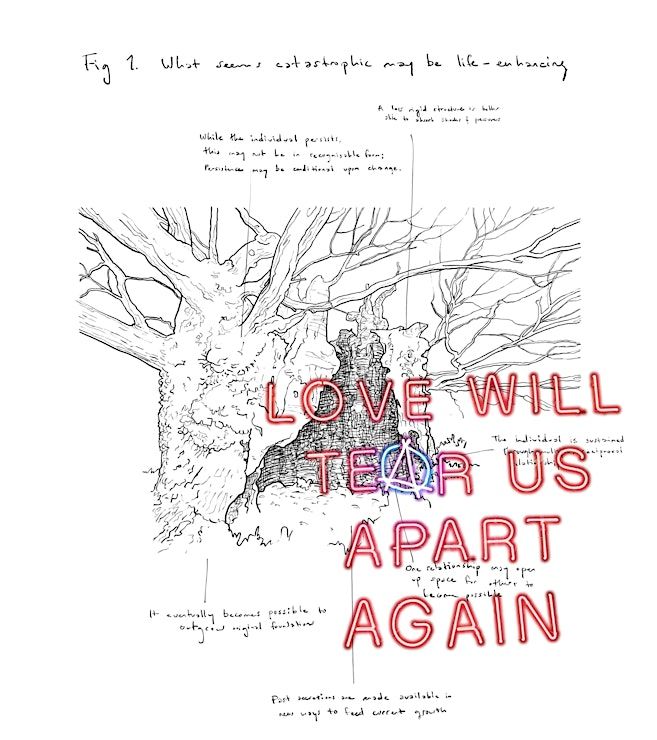 Fig 1. What seems catastrophic may be life-enhancing
A less rigid structure is better
able to absorb shocks &
While the individual persists,
this may not be in recognisable form;
Persistence may be conditional upon change.
LOVE WILL
The individual is sustained
TEAR US
APART
One relationship may open
up space for others to
become possible
AGAIN
It eventually becomes possible to
outgrow original foundation
Past are made available in
new ways to feed current growth